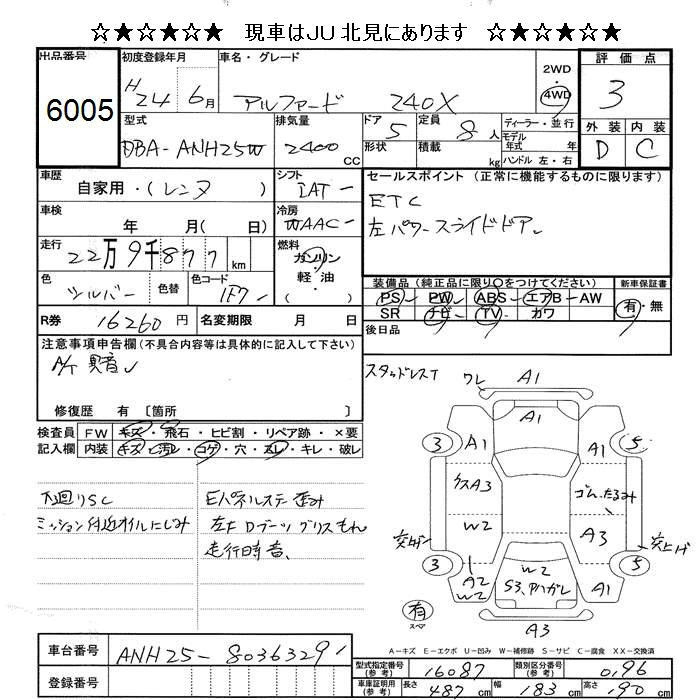 ☆★☆★☆★ 現車はJU北見にあります ☆★☆★☆★
出品番号
6005
初度登録年月
H24 6月
車名・グレード
アルファード 240X
2WD・4WD
評価点
3
外装 内装
D C
型式
DBA-ANH25W
排気量
2400 CC
ドア 5
形状
定員 8人
積載 kg
ディーラー・並行
モデル年式 年式
ハンドル 左・右
車歴
自家用・(レンヌ )
シフト
IAT
車検
年 月( 日)
冷房
WAAC
走行
22万9千877km
燃料
ガソリン
軽・油
( )
色
シルバー
色替
色コード
1F7
セールスポイント (正常に機能するものに限ります)
ETC
左パワースライドドア
装備品(純正品に限り○をつけてください)
PS PW ABS エアB AW
SR ナビ TV カワ
新車保証書
有・無
後日品
R券 16260円
名変期限 月 日
注意事項申告欄(不具合内容等は具体的に記入して下さい)
A/T 異音
修復歴 有〔箇所 〕
検査員記入欄
FW キズ・飛石・ヒビ割・リペア跡・×要
内装 キズ・汚レ・コゲ・穴・スレ・キレ・破レ
下廻りSC
ミッション付近オイルにじみ
Eパネルステー歪み
左FDブーツグリスもれ
走行時音
スタッドレスT
ワレ A1
A1
3 A1 A1 5
A3
ゴムたるみ
W2
A3
交換ナシ
交上げ
3 A2 W2 W2 S3、アハガレ A1 5
有
スペア
A3
A-キズ E-エクボ U-凹み W-補修跡 S-サビ C-腐食 XX-交換済
車台番号
ANH25-8036329
型式指定番号(参考) 16087
類別区分番号(参考) 0196
車庫証明用(参考) 長さ 487cm 幅 183cm 高さ 190cm